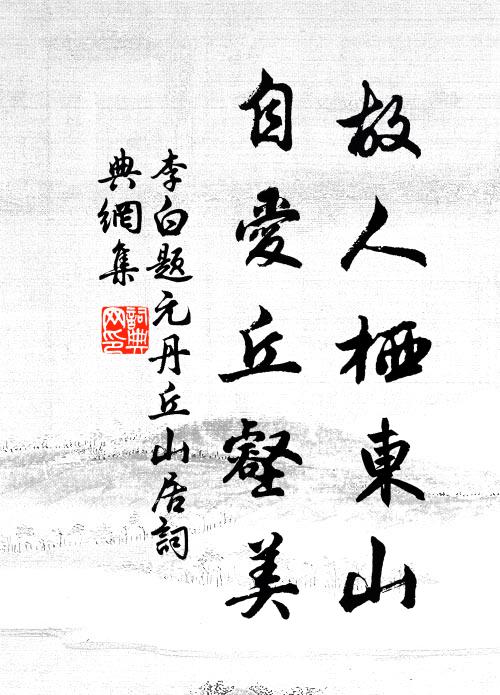 故人栖東山
自愛丘壑美
李白題元丹丘山居詞
典網集
詞典网印